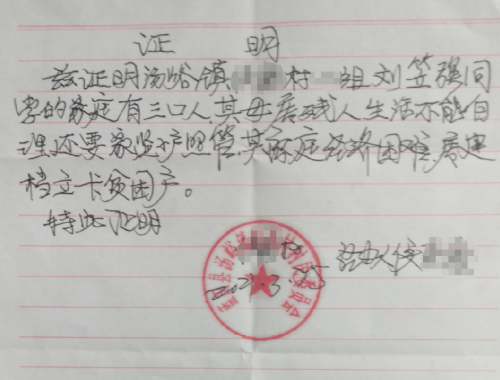 证 明
兹证明汤峪镇 村 组刘笠强同
学的家庭有三口人,其母属残人生活不能自
理,还要家监护照管,其家庭经济困难,属建
档立卡贫困户。
特此证明
村 经办人侯
县汤峪镇